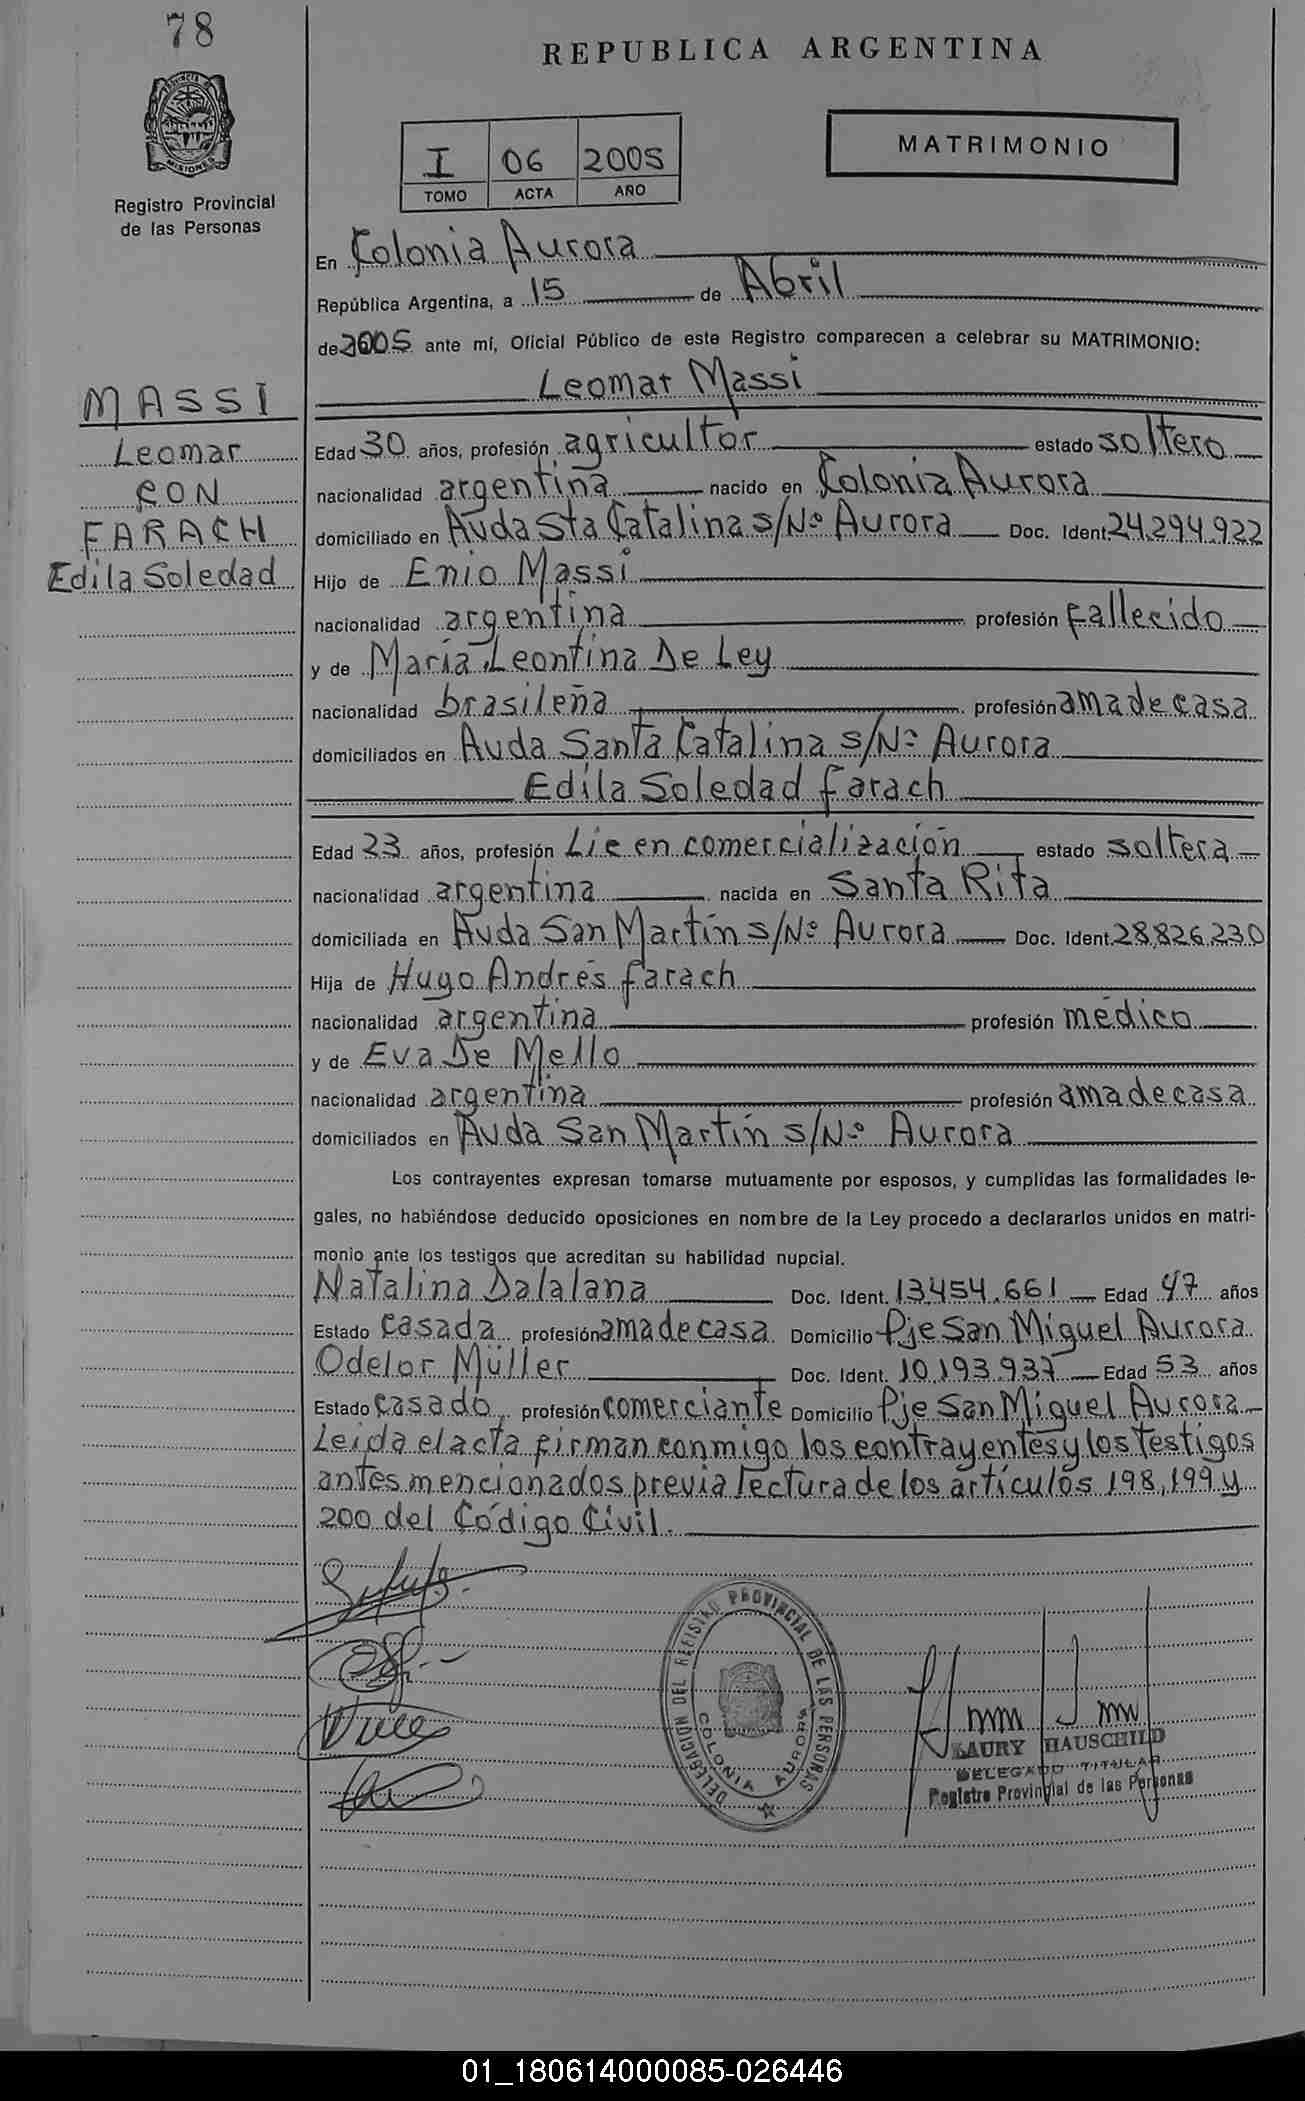 78
REPUBLICA ARGENTINA
MISIONES
Registro Provincial
de las Personas
I 06 2005
TOMO ACTA AÑO
MATRIMONIO
En Colonia Aurora
República Argentina, a 15 de Abril
de 2005 ante mí, Oficial Público de este Registro comparecen a celebrar su MATRIMONIO:
Leomar Massi
MASSI
Leomar
CON
FARACH
Edila Soledad
Edad 30 años, profesión agricultor estado soltero
nacionalidad argentina nacido en Colonia Aurora
domiciliado en Avda Sta Catalina s/Nº Aurora Doc. Ident. 24.294.922
Hijo de Enio Massi
nacionalidad argentina profesión fallecido
y de María Leontina De Ley
nacionalidad brasileña profesión ama de casa
domiciliados en Avda Santa Catalina s/Nº Aurora
Edila Soledad Farach
Edad 23 años, profesión Lic en comercialización estado soltera
nacionalidad argentina nacida en Santa Rita
domiciliada en Avda San Martín s/Nº Aurora Doc. Ident. 28.826.230
Hija de Hugo Andrés Farach
nacionalidad argentina profesión médico
y de Eva De Mello
nacionalidad argentina profesión ama de casa
domiciliados en Avda San Martín s/Nº Aurora
Los contrayentes expresan tomarse mutuamente por esposos, y cumplidas las formalidades le-
gales, no habiéndose deducido oposiciones en nombre de la Ley procedo a declararlos unidos en matri-
monio ante los testigos que acreditan su habilidad nupcial.
Natalina Dalalana Doc. Ident. 13.454.661 Edad 47 años
Estado casada profesión ama de casa Domicilio Pje San Miguel Aurora
Odelor Müller Doc. Ident. 10.193.937 Edad 53 años
Estado casado profesión comerciante Domicilio Pje San Miguel Aurora
Leida el acta firman conmigo los contrayentes y los testigos
antes mencionados previa lectura de los artículos 198, 199 y
200 del Código Civil.
DELEGACION DEL REGISTRO PROVINCIAL DE LAS PERSONAS
COLONIA AURORA
LAURY HAUSCHILD
DELEGADO TITULAR
Registro Provincial de las Personas
01_180614000085-026446